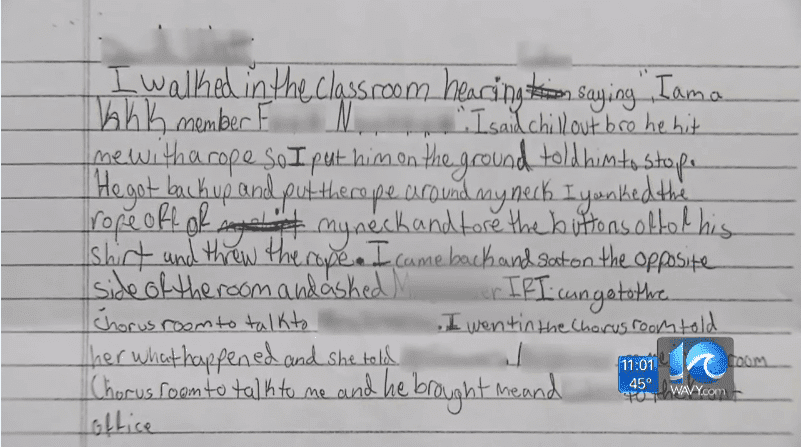 I walked in the classroom hearing saying", I am a
KKK member F N ". I said chill out bro he hit
me with a rope so I put him on the ground told him to stop.
He got back up and put the rope around my neck I yanked the
rope off of my neck and tore the buttons off of his
shirt and threw the rope. I came back and sat on the opposite
side of the room and asked M er IF I can go to the
chorus room to talk to . I went in the chorus room told
her what happened and she told . I room
Chorus room to talk to me and he brought me and to
office
11:01
45°
10
WAVY.com